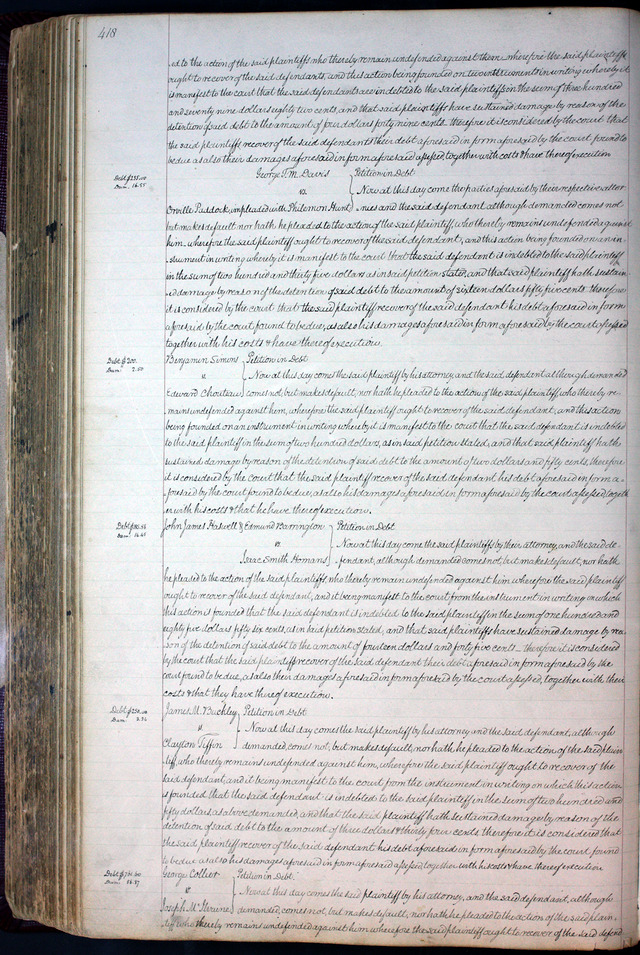 418
ed to the action of the said plaintiffs who thereby remain undefended against them wherefore the said plaintiffs
ought to recover of the said defendants, and this action being founded on two instruments in writing whereby it
is manifest to the court that the said defendants are indebted to the said plaintiffs in the sum of three hundred
and seventy nine dollars eighty two cents, and that said plaintiffs have sustained damage by reason of the
detention of said debt to the amount of four dollars forty nine cents. Therefore it is considered by the court that
the said plaintiffs, recover of the said defendants their debt aforesaid in form aforesaid by the court found to
be due as also their damages aforesaid in form aforesaid assessed, together with costs & have thereof execution
George T. M. Davis Petition in Debt
Debt $235.00
Dam. 16.55
vs. Now at this day come the parties aforesaid by their respective attor
Orville Paddock, impleaded with Philemon Hunt nies and the said defendant although demanded comes not
but makes default nor hath he pleaded to the action of the said plaintiff, who thereby remains undefended against
him, wherefore the said plaintiff ought to recover of the said defendant, and this action being founded on an in
strument in writing whereby it is manifest to the court that the said defendant is indebted to the said plaintiff
in the sum of two hundred and thirty five dollars as in said petition stated, and that said plaintiff hath sustain
ed damage by reason of the detention of said debt to the amount of sixteen dollars fifty five cents. therefore
it is considered by the court that the said plaintiff recover of the said defendant his debt aforesaid in form
aforesaid by the court found to be due, as also his damages aforesaid in form aforesaid by the court assessed
together with his costs & have thereof execution.
Debt $200.
Dam. 2.50
Benjamin Simons Petition in Debt
vs Now at this day comes the said plaintiff by his attorney, and the said defendant although demanded
Edward Chouteau comes not, but makes default, nor hath he pleaded to the action of the said plaintiff, who thereby re-
mains undefended against him, wherefore the said plaintiff ought to recover of the said defendant, and this action
being founded on an instrument in writing whereby it is manifest to the court that the said defendant is indebted
to the said plaintiff in the sum of two hundred dollars, as in said petition stated, and that said plaintiff hath
sustained damage by reason of the detention of said debt to the amount of two dollars and fifty cents, therefore
it is considered by the court that the said plaintiff recover of the said defendant his debt aforesaid in form a-
foresaid by the court found to be due, as also his damages aforesaid in form aforesaid by the court assessed togeth
er with his costs & that he have thereof execution.
Debt $185.56
Dam. 14.45
John James Haswell & Edmund Barrington Petition in Debt
vs Now at this day come the said plaintiffs by their attorney, and the said de
Isaac Smith Homans fendant, although demanded comes not, but makes default, nor hath
he pleaded to the action of the said plaintiffs who thereby remain undefended against him, wherefore the said plaintiffs
ought to recover of the said defendant, and it being manifest to the court from the instrument in writing on which
this action is founded that the said defendant is indebted to the said plaintiffs in the sum of one hundred and
eighty five dollars fifty six cents, as in said petition stated, and that said plaintiffs have sustained damage by rea-
son of the detention of said debt to the amount of fourteen dollars and forty five cents. Therefore it is considered
by the court that the said plaintiffs recover of the said defendant their debt aforesaid in form aforesaid by the
court found to be due, as also their damages aforesaid in form aforesaid by the court assessed, together with their
costs & that they have thereof execution.
Debt $250.00
Dam. 3.34
James M. Buckley Petition in Debt
vs Now at this day comes the said plaintiff by his attorney and the said defendant, although
Clayton Tiffin demanded, comes not, but makes default, nor hath he pleaded to the action of the said plain
tiff, who thereby remains undefended against him, wherefore the said plaintiff ought to recover of the
said defendant, and it being manifest to the court from the instrument in writing on which this action
is founded that the said defendant is indebted to the said plaintiff in the sum of two hundred and
fifty dollars as above demanded, and that the said plaintiff hath sustained damage by reason of the
detention of said debt to the amount of three dollars & thirty four cents, therefore it is considered that
the said plaintiff recover of the said defendant his debt aforesaid in form aforesaid by the court found
to be due as also his damages aforesaid in form aforesaid assessed, together with his costs & have thereof execution
George Collier Petition in Debt.
vs Now at this day comes the said plaintiff by his attorney, and the said defendant, although
Joseph demanded, comes not, but makes default, nor hath he pleaded to the action of the said plain-
tiff who thereby remains undefended against him wherefore the said plaintiff ought to recover of the said defend